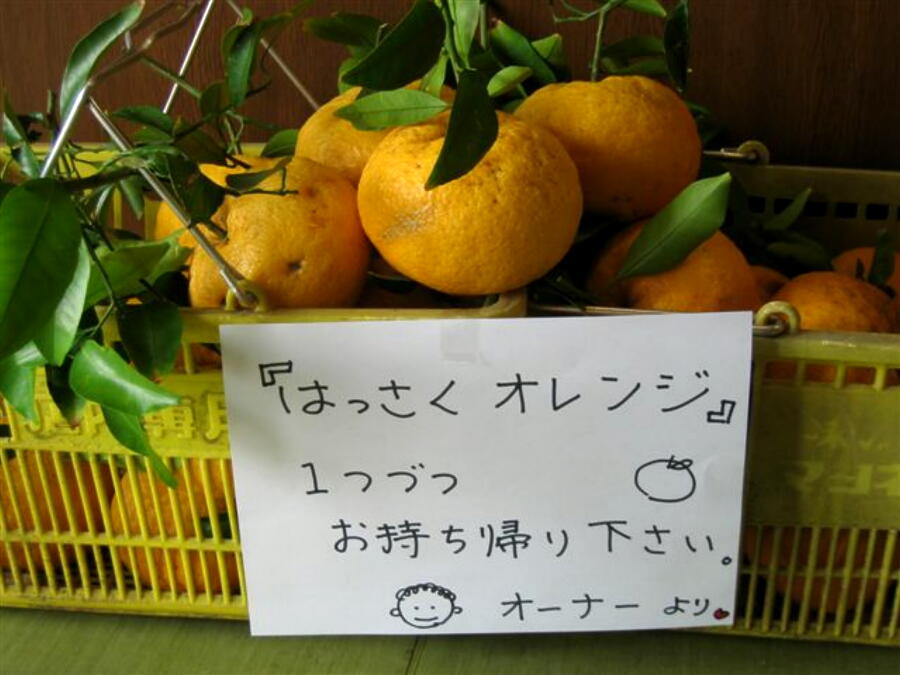 『はっさく オレンジ』
1つづつ
お持ち帰り下さい。
オーナー より